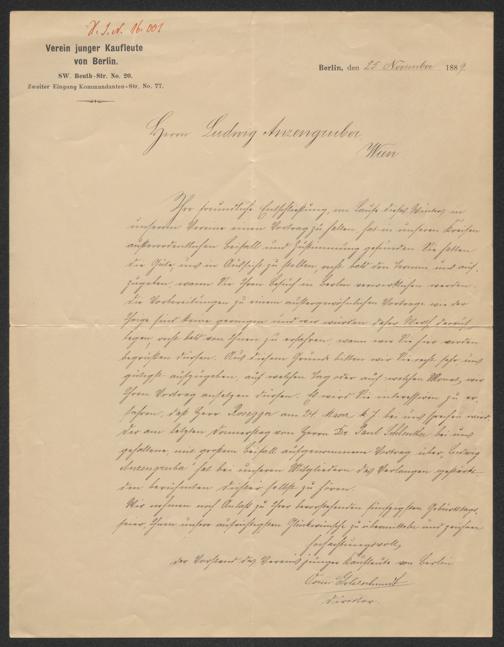 V. J. A. 16.001
Verein junger Kaufleute
von Berlin.
SW. Beuth-Str. No. 20.
Zweiter Eingang Kommandanten-Str. No. 77.
Berlin, den 25 November 1889.
Herrn Ludwig Anzengruber
Wien
Ihre freundliche Entschließung, im Laufe dieses Winters in
unserem Vereine einen Vortrag zu halten, hat in unseren Kreisen
außerordentlichen Beifall und Zustimmung gefunden. Sie hatten
die Güte, uns in Aussicht zu stellen, recht bald den
zugeben, wann Sie Ihren Besuch in Berlin verwirklichen werden.
Die Vorbereitungen zu einem außergewöhnlichen Vortrage wie der
Ihrige sind keine geringen und wir würden daher Werth darauf
legen, recht bald von Ihnen zu erfahren, wann wir Sie hier werden
begrüßen dürfen. Aus diesem Grunde bitten wir Sie recht sehr uns
gütigst aufzugeben, auf welchen Tag oder auf welchen Monat, wir
Ihren Vortrag ansetzen dürfen. Es wird Sie interessiren zu er-
fahren, daß Herr am 24 k. J. bei uns sprechen wird.
Der am letzten Donnerstag von Herrn Dr Paul Schlenther bei uns
gehaltene, mit großem Beifall aufgenommene Vortrag über „Ludwig
Anzengruber" hat bei unseren Mitgliedern das Verlangen gestärkt,
den berühmten Dichter selbst zu hören.
Wir nehmen noch Anlaß zu Ihrer bevorstehenden fünfzigsten Geburtstags-
feier Ihnen unsere aufrichtigsten Glückwünsche zu übermitteln und zeichnen
hochachtungsvoll,
der Vorstand des Vereins junger Kaufleute von Berlin
Goldschmidt
Director